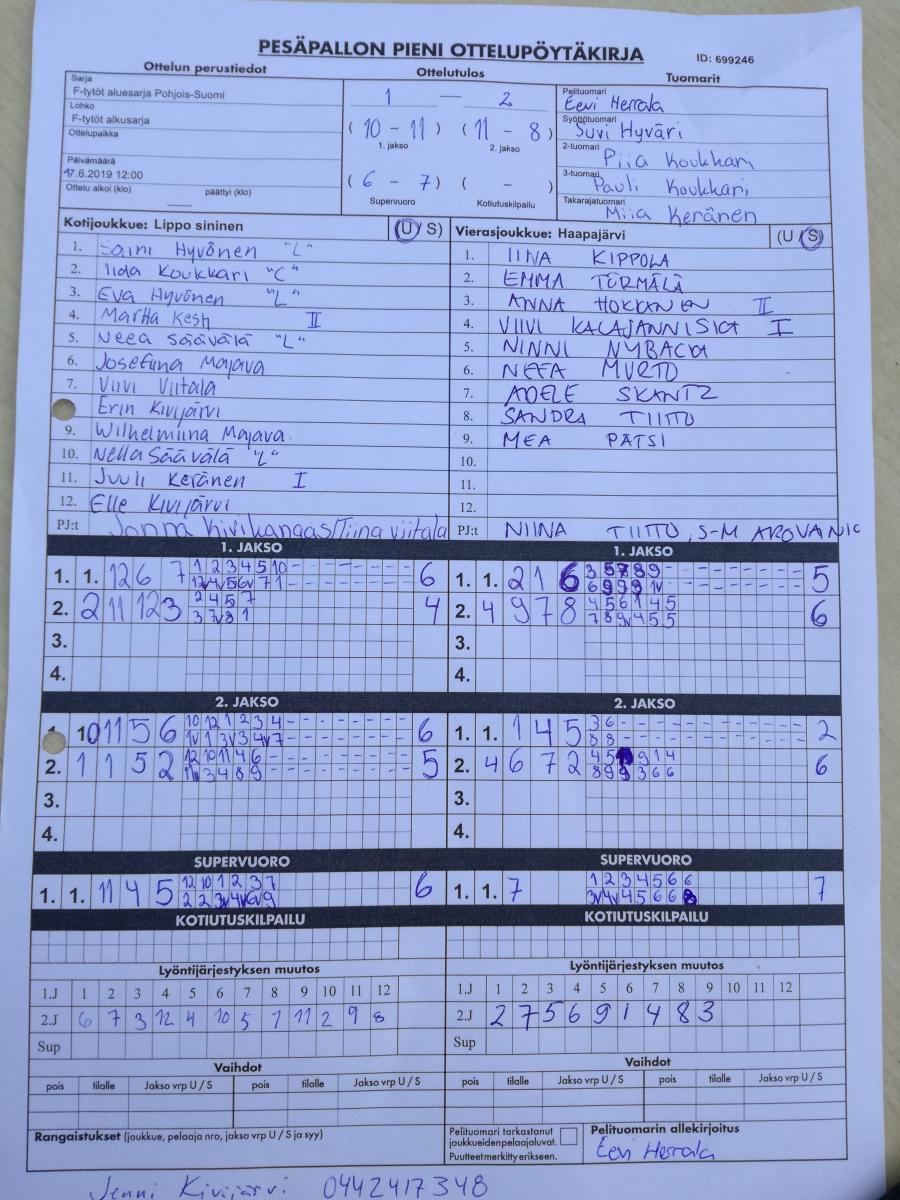 PESÄPALLON PIENI OTTELUPÖYTÄKIRJA
ID: 699246
Ottelun perustiedot
Ottelutulos
Tuomarit
Sarja
F-tytöt aluesarja Pohjois-Suomi
Lohko
F-tytöt alkusarja
Ottelupaikka
Päivämäärä
17.6.2019 12:00
Ottelu alkoi (klo) päättyi (klo)
1 — 2
( 10 - 11 ) ( 11 - 8 )
1. jakso 2. jakso
( 6 - 7 ) ( - )
Supervuoro Kotiutuskilpailu
Pelituomari
Eevi Herrala
Syöttötuomari
Suvi Hyväri
2-tuomari
Piia Koukkari
3-tuomari
Pauli Koukkari
Takarajatuomari
Miia Keränen
Kotijoukkue: Lippo sininen (U / S)
1. Saini Hyvönen "L"
2. Iida Koukkari "C"
3. Eva Hyvönen "L"
4. Martta Kesh II
5. Neea Säävälä "L"
6. Josefiina Majava
7. Viivi Viitala
Erin Kivijärvi
9. Wilhelmiina Majava
10. Nella Säävälä "L"
11. Juuli Keränen I
12. Elle Kivijärvi
PJ:t Jonna Kivikangas/Tiina Viitala
Vierasjoukkue: Haapajärvi (U / S)
1. IINA KIPPOLA
2. EMMA TÖRMÄLÄ
3. ANNA HOKKANEN II
4. VIIVI KALAJANNISKA I
5. NINNI NYBACKA
6. NEEA MURTO
7. ADELE SKANTZ
8. SANDRA TIITTO
9. MEA PÄTSI
10.
11.
12.
PJ:t NIINA TIITTO, S-M
1. JAKSO
1. 1. 12 6 7 1 2 3 4 5 10 6
2. 2 11 12 3 2 4 5 7 4
3 7v 8 1
3.
4.
1. JAKSO
1. 1. 2 1 6 3 5 7 8 9 5
2. 4 9 7 8 4 5 6 1 4 5 6
7 8 9v 4 5 5
3.
4.
2. JAKSO
1. 10 11 5 6 10 12 1 2 3 4 6
1v 1 3v 3 4v 7
2. 1 1 5 2 12 10 11 4 6 5
3 4 8 9
3.
4.
2. JAKSO
1. 1. 1 4 5 3 6 2
8 8
2. 4 6 7 2 4 5 9 1 4 6
8 9 9 3 6 6
3.
4.
SUPERVUORO
1. 1. 11 4 5 12 10 1 2 3 7 6
2 2 3v 4v 6v 9
SUPERVUORO
1. 1. 7 1 2 3 4 5 6 6 7
3v 4v 4 5 6 6 8
KOTIUTUSKILPAILU
KOTIUTUSKILPAILU
Lyöntijärjestyksen muutos
1.J 1 2 3 4 5 6 7 8 9 10 11 12
2.J 6 7 3 12 4 10 5 1 11 2 9 8
Sup
Lyöntijärjestyksen muutos
1.J 1 2 3 4 5 6 7 8 9 10 11 12
2.J 2 7 5 6 9 1 4 8 3
Sup
Vaihdot
pois tilalle Jakso vrp U / S pois tilalle Jakso vrp U / S
Vaihdot
pois tilalle Jakso vrp U / S pois tilalle Jakso vrp U / S
Rangaistukset (joukkue, pelaaja nro, jakso vrp U / S ja syy)
Pelituomari tarkastanut
joukkueidenpelaajaluvat.
Puutteet merkitty erikseen.
Pelituomarin allekirjoitus
Eevi Herrala
Jenni Kivijärvi 0442417348